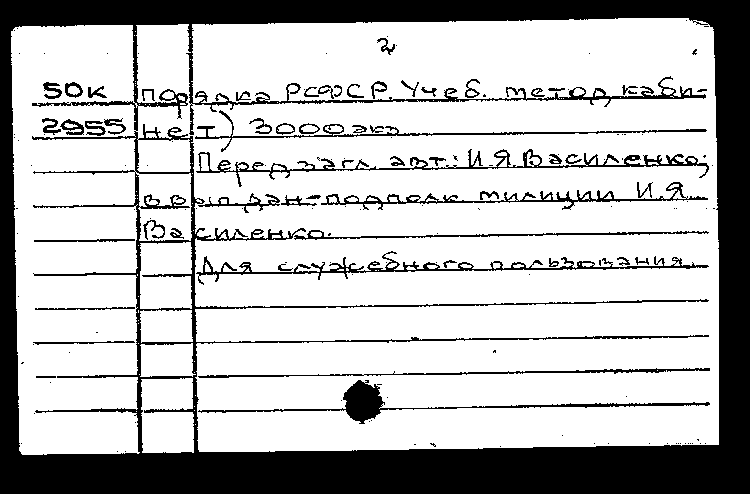 2
50к порядка РСФСР. Учеб. метод, каби-
2955 нет) 3000экз
Перед загл. авт.: И Я Василенко;
в вып. дан-подполк милиции И.Я
Василенко.
Для служебного пользования.